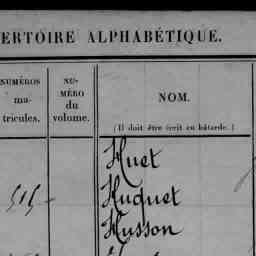 ERTOIRE ALPHABÉTIQUE.
NUMÉROS
ma-
tricules.
NU-
MÉRO
du
volume.
NOM.
(Il doit être écrit en bâtarde.)
Huet
515 Huguet
Husson